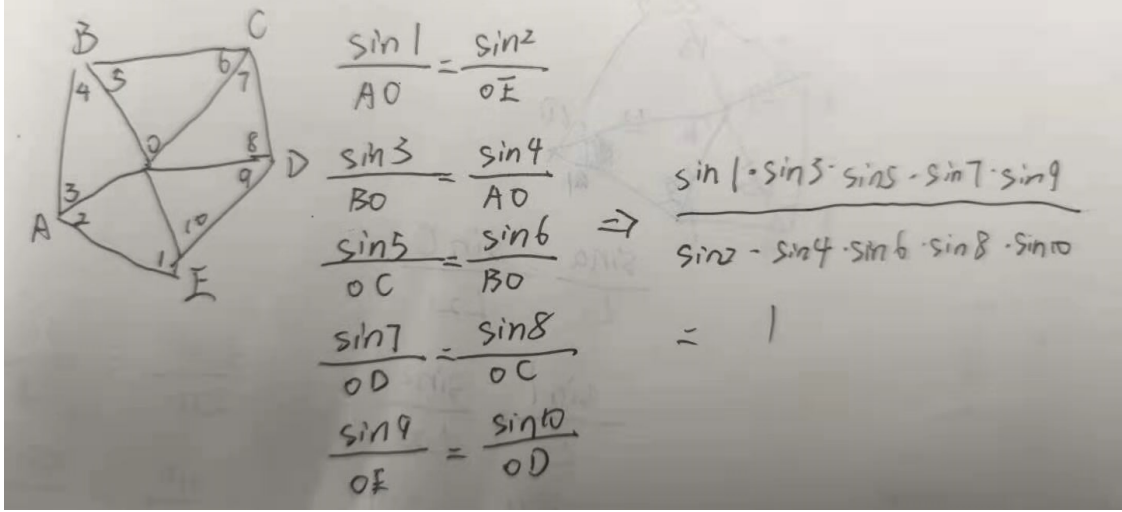 B
C
4
5
6
7
O
8
D
9
3
A
2
10
1
E
sin1/AO = sin2/OE
sin3/BO = sin4/AO
sin5/OC = sin6/BO
sin7/OD = sin8/OC
sin9/OE = sin10/OD
⇒ sin1·sin3·sin5·sin7·sin9/sin2·sin4·sin6·sin8·sin10
= 1